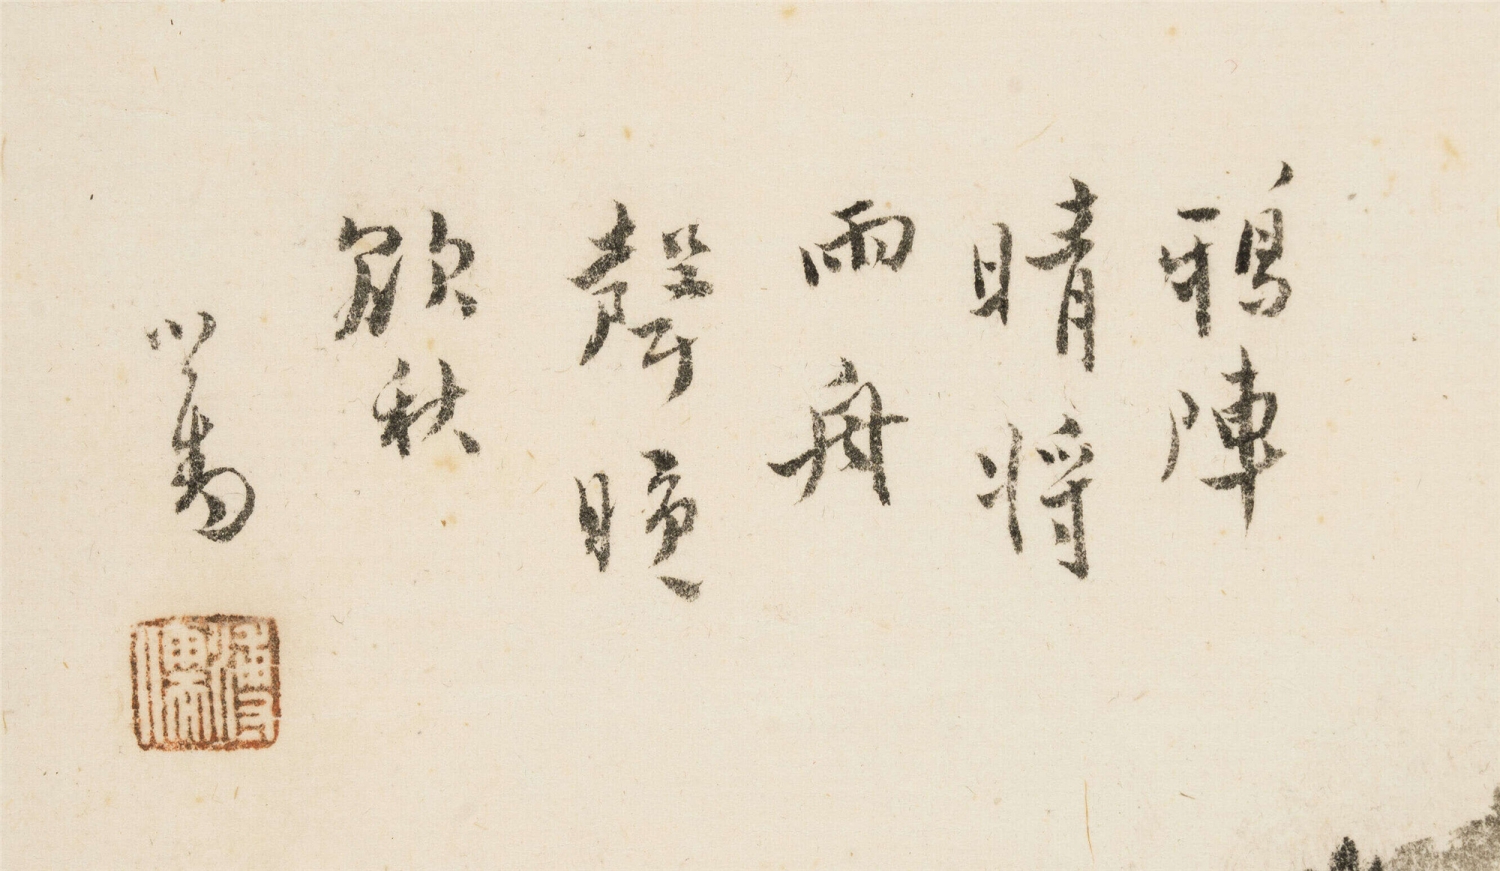 鴉陣
晴將
雨舟
聲暝
飲秋
心畬
溥儒